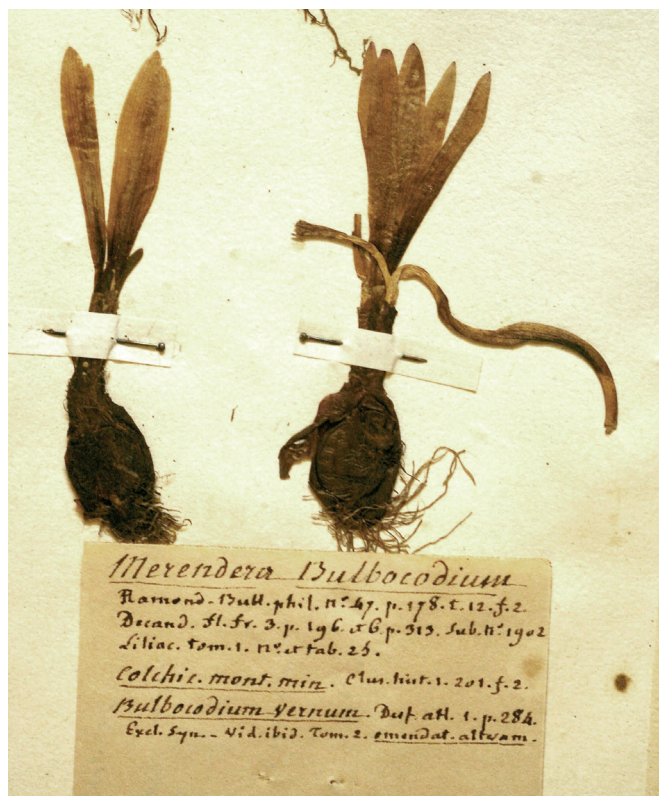 Merendera Bulbocodium
Ramond. Bull. phil. N.º 47. p. 178. t. 12. f. 2.
Decand. fl. fr. 3. p. 196. et 6. p. 313. Sub. N.º 1902
Liliac. Tom. 1. N.º et tab. 25.
Colchic. mont. min. Clus. hist. 1. 201. f. 2.
Bulbocodium Vernum. Desf. atl. 1. p. 284.
Excl. Syn. - Vid. ibid. Tom. 2. emendat. alteram.